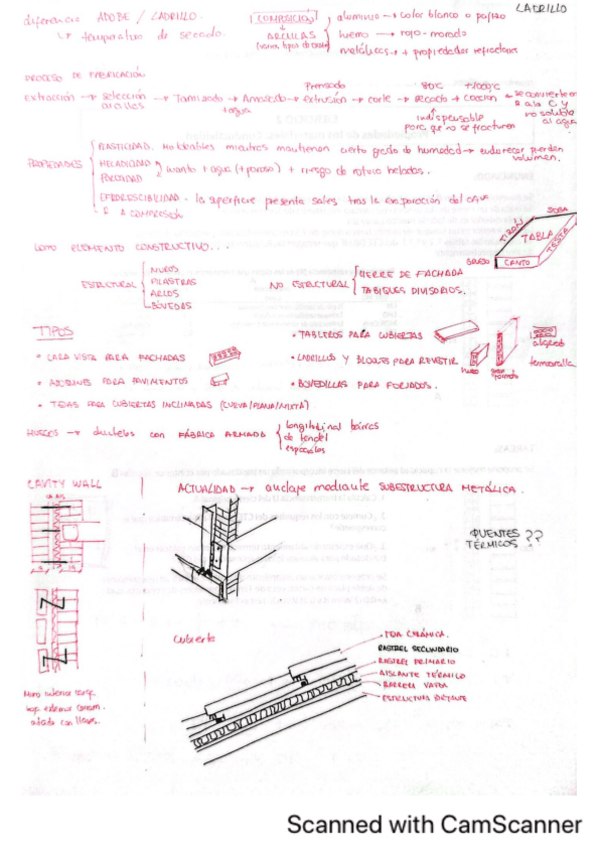 LADRILLO
diferencia ADOBE / LADRILLO.
↳ temperatura de secado.
COMPOSICIÓN
↓
ARCILLAS
aluminio → color blanco o pajizo
hierro → rojo-morado
metálicos → + propiedades refractarias
PROCESO DE FABRICACIÓN
Extracción → selección arcillas → Tamizado → Amasado + agua → extrusión → corte → secado → cocción → se convierte
Prensado
80°C
indispensable
para que no se fracturen
a la C y
no soluble
al agua
PROPIEDADES
PLASTICIDAD. Moldeables mientras mantienen cierto grado de humedad → endurecer pierden
volumen.
HELADICIDAD
POROSIDAD
cuanto + agua (+ poroso) + riesgo de rotura heladas.
EFLORESCIBILIDAD. la superficie presenta sales tras la evaporación del agua
R A COMPRESIÓN
SOGA
TIZÓN
TABLA
TESTA
GRUESO
CANTO
COMO ELEMENTO CONSTRUCTIVO...
ESTRUCTURAL
MUROS
PILASTRAS
ARCOS
BÓVEDAS
NO ESTRUCTURAL
CIERRE DE FACHADA
TABIQUES DIVISORIOS.
TIPOS
• CARA VISTA PARA FACHADAS
• ADOQUINES PARA PAVIMENTOS
• TEJAS PARA CUBIERTAS INCLINADAS (CURVA/PLANA/MIXTA)
• TABLEROS PARA CUBIERTAS
• LADRILLOS Y BLOQUES PARA REVESTIR
• BOVEDILLAS PARA FORJADOS.
hueco
gran
formato
termoarcilla
HUECOS → dinteles con FÁBRICA ARMADA
longitudinal barras
de tendel
especiales
CAVITY WALL
ACTUALIDAD → anclaje mediante SUBESTRUCTURA METÁLICA.
PUENTES
TÉRMICOS ??
Cubierta
TEJA CERÁMICA.
RASTREL SECUNDARIO
RASTREL PRIMARIO
AISLANTE TÉRMICO
BARRERA VAPOR
ESTRUCTURA PORTANTE
Muro interior carga
hoja exterior
atada con llaves.
Scanned with CamScanner